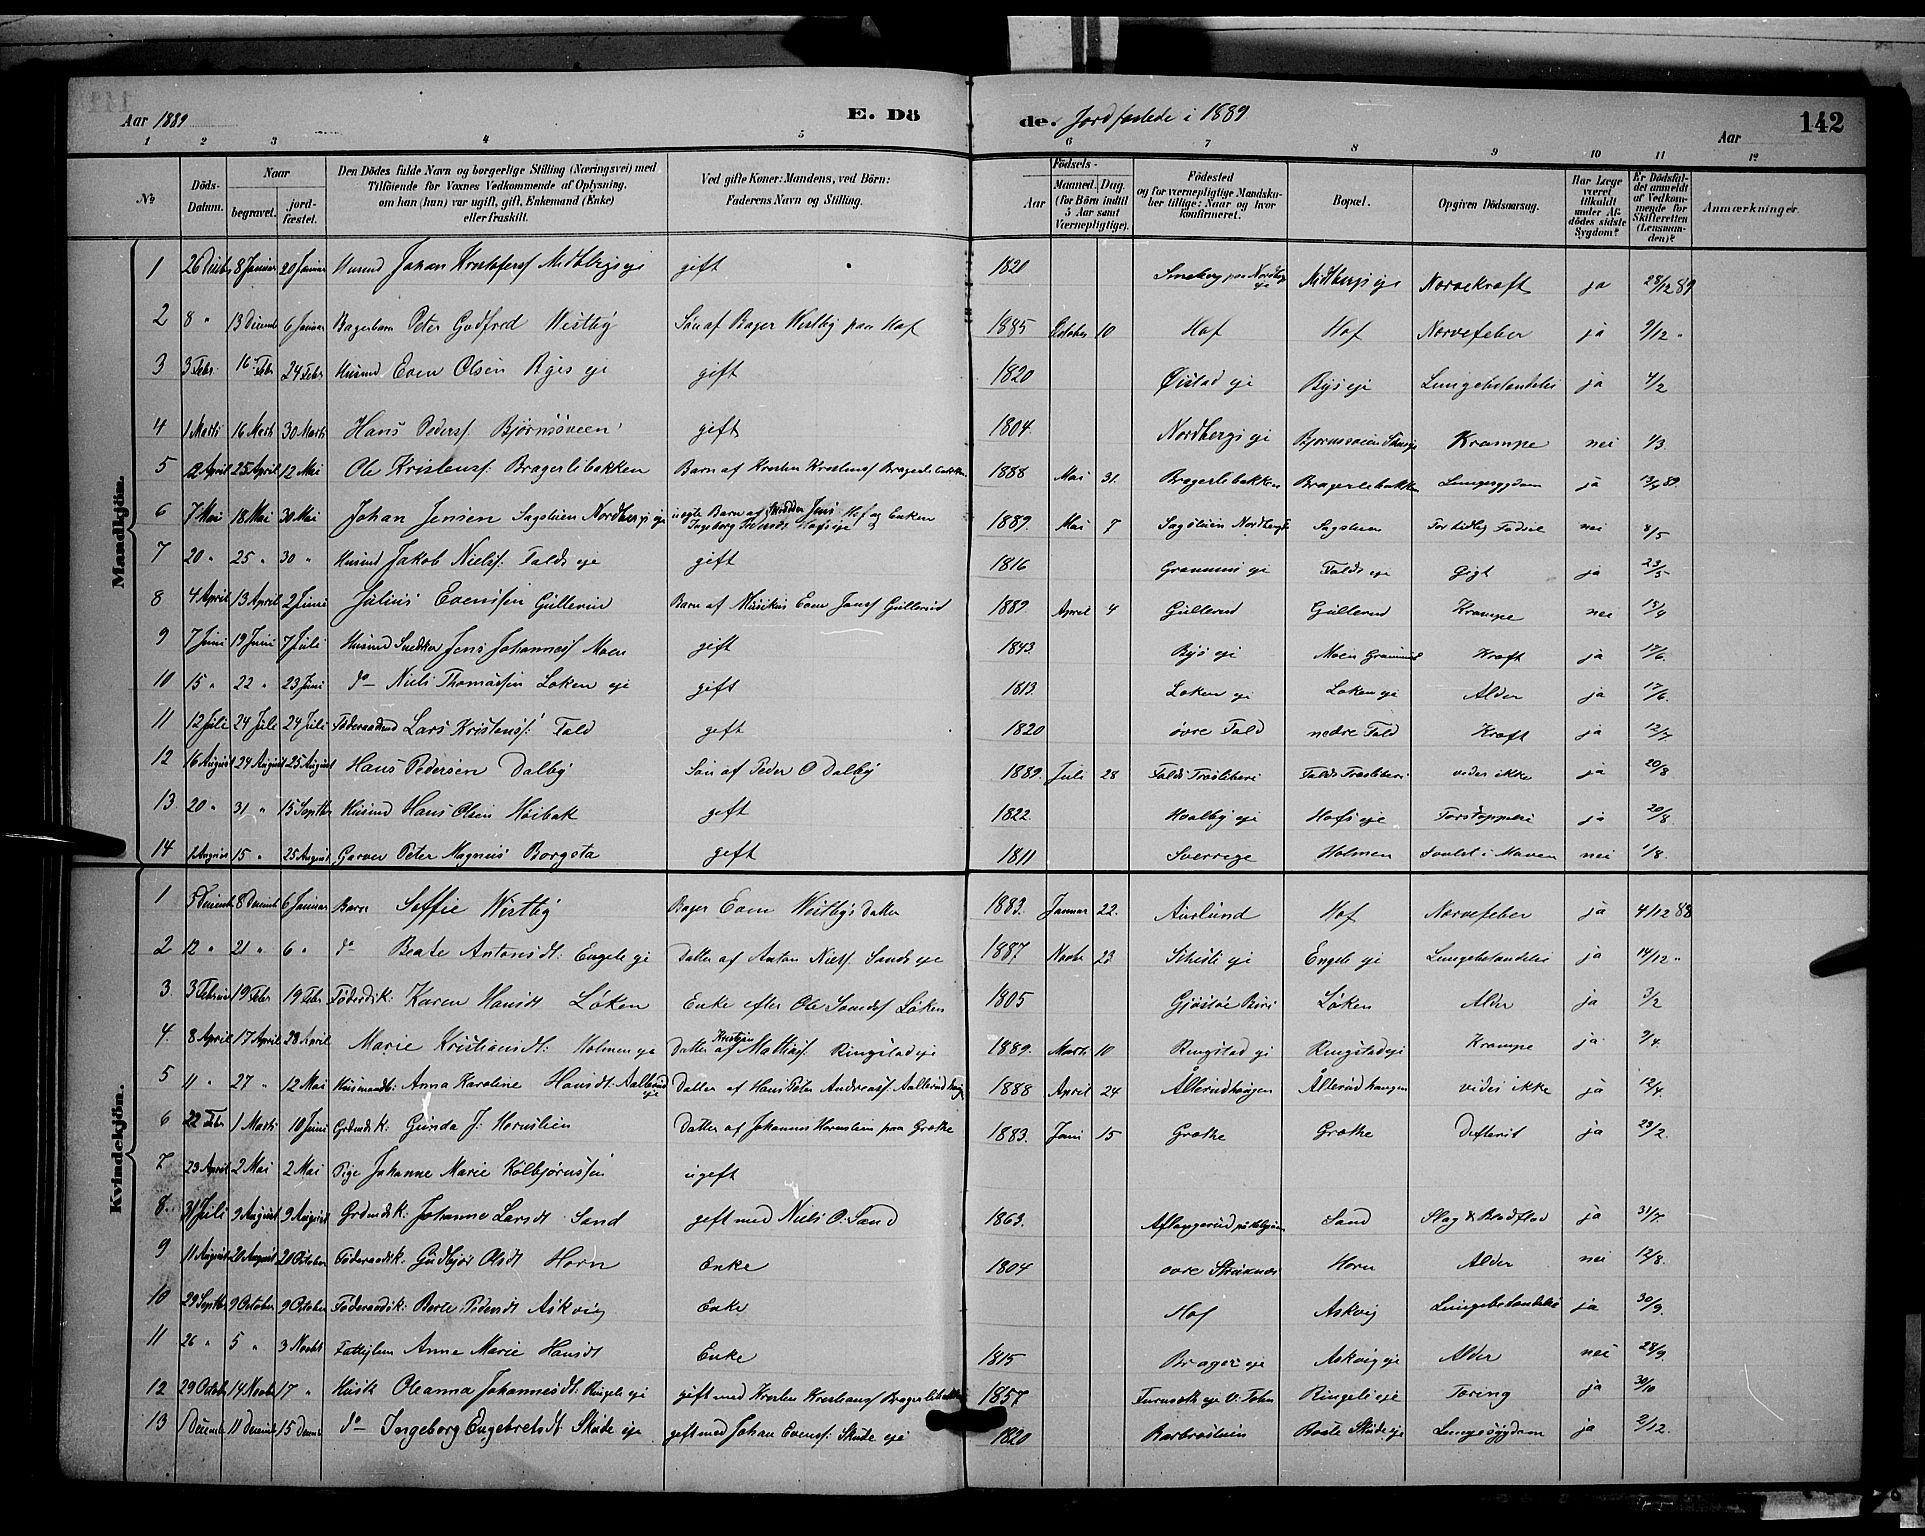 Aar 1889 E. Dö de. Jordfæstede i 1889 Aar 142
1 2 3 4 5 6 7 8 9 10 11 12
№ Döds-Datum. Naar begravet. jordfæstet. Den Dödes fulde Navn og borgerlige Stilling (Næringsvei) med Tilföiende for Voxnes Vedkommende af Oplysning, om han (hun) var ugift, gift, Enkemand (Enke) eller fraskilt. Ved gifte Koner: Mandens, ved Börn: Faderens Navn og Stilling. Födsels- Aar Maaned. Dag. (for Börn indtil 5 Aar samt Værnepligtige). Födested og for værnepligtige Mandskaber tillige: Naar og hvor konfirmeret. Bopæl. Opgiven Dödsaarsag. Har Læge været tilkaldt under Afdödes sidste Sygdom? Er Dödsfaldet anmeldt af Vedkommende for Skifteretten (Lensmanden)? Anmærkninger.
Mandkjön.
1 26 8 Januar 20 Januar Husmd Johan Kristofers. Midtbergseje gift 1820 Nordbergs eje Midtbergs eje Norvekraft ja 28/12 89
2 8 " 13 Decemb 6 Januar Bagerbarn Peter Godfred Westby Søn af Bager Westby paa Hof 1885 October 10 Hof Hof Norvefeber ja 9/12 "
3 3 Febr. 16 Febr 24 Febr Husmd Even Olsen Byes eje gift 1820 Øistad eje Byseje Lungebetændelse ja 4/2
4 1 Marts 16 Marts 30 Marts Hans Peders. Bjørnsøveen gift 1804 Nordbergs eje Bjørnsøveen Krampe nei 1/3
5 12 April 25 April 12 Mai Ole Kristens. Bragerlibakken Barn af Kresten Krestens. Bragerlibakken 1888 Mai 31. Bragerlibakken Bragerlibakken Lungesygdom ja 13/4 89
6 7 Mai 18 Mai 30 Mai Johan Jensen Sagstuen Nordbergs eje uegte Barn af Skrædder Jens Hof og Enken Ingeborg Hofseje 1889. Mai 7 Sagstuen Nordbergs Sagstuen For tidlig Fødsel nei 8/5
7 20 " 25 " 30 " Husmd Jakob Niels. Falds eje gift 1816 Gramms eje Falds eje Gigt ja 23/5
8 4 April 13 April 2 Juni Julius Evensen Gullerud Barn af Musikus Even Jons. Gullerud 1889 April 4 Gullerud Gullerud Krampe nei 13/4
9 7 Juni 19 Juni 7 Juli Husmd Snedker Jens Johannes. Moen gift 1843 Bys eje Moen Kræft ja 17/6
10 15 " 22 " 23 Juni do - Niels Thomassen Løken eje gift 1813. Løken eje Løken eje Alder ja 17/6
11 12 Juli 24 Juli 24 Juli Føderaadmd Lars Kristens. Fald gift 1820 øvre Fald nedre Fald Kræft ja 12/7
12 16 August 24 August 25 August Hans Pedersen Dalby Søn af Peder O Dalby 1889. Juli 28 vides ikke ja 20/8
13 20 " 31 " 15 Septbr Husmd Hans Olsen Høibak gift 1822 Hoalby eje Hofs eje Forstoppelse ja 20/8
14 1 August 15 " 25 August Garver Peter Magnus Borgsta gift 1811 Sverrige Holmen Svulst i Maven nei 1/8.
Kvindekjön.
1 5 Decemb 8 Decemb 6 Januar Barn Soffie Westby Bager Even Westbys Datter 1883. Januar 22. Aurlund Hof Norvefeber ja 4/12 88
2 12 " 21 " 6 " do Beate Antonsdt. Engeleje Datter af Anton Niels. Sandseje 1887 Novbr 23 Engeleje Lungebetændelse ja 14/12 "
3. 3 Februar 19 Febr 19 Febr Føderdk: Karen Hansdt Løken Enke efter Ole Løken 1805 Biri Løken Alder ja 3/2
4. 8 April 17 April 28 April Marie Kristiansdt: Holmen eje Datter af Kristjan Mathias. Ringstad eje 1889. Marts 10 Ringstad eje Ringstad eje Krampe ja 9/4.
5 11 " 27 " 12 Mai Husmandsdt: Anna Karoline Hansdt. Aallerud eje Datter af Hans Peter Andreas. Aallerudhaug 1888 April 24 Ållerudhaugen Ållerudhaugen vides ikke ja 12/4.
6 22 Febr 1 Marts 10 Juni Grdmdsk: Gunda J. Hornslien Datter af Johannes Hornslien paa Grøthe 1883. Juni 15 Grøthe Grøthe Difterit ja 23/2.
7 23 April 2 Mai 2 Mai Pige Johanne Marie Kolbjørnssen ugift
8. 31 Juli 9 August 9 August Grdmdsk: Johanne Larsdt Sand gift med Niels O. Sand 1863. Sand Slag & Blodflod ja 31/7.
9 11 August 20 August 20 October Føderaadsk: Gudbjør Olsdt Horn Enke 1804 øvre Horn Alder nei 12/8.
10 29 Septbr 9 October 9 October Føderaadsk: Berte Pedersdt Askvig Enke Hof Askvig Lungebetændelse ja 30/9.
11 26 " 5 " 3 Novbr Fattiglem Anne Marie Hansdt Enke 1815 Brager eje Askvig eje Alder nei 28/9.
12 29 October 14 Novbr 17 " Husk Oleanna Johannesdt: Ringeli eje gift med Kresten Krestians. Bragerlibakken 1857 Ringeli eje Tæring ja 30/10
13 1 Decemb 11 Decemb 15 Decemb do - Ingeborg Engebretsdt. Skute eje gift med Johan Evens. Skute eje 1820 Skute eje Lungesygdom ja 2/12.